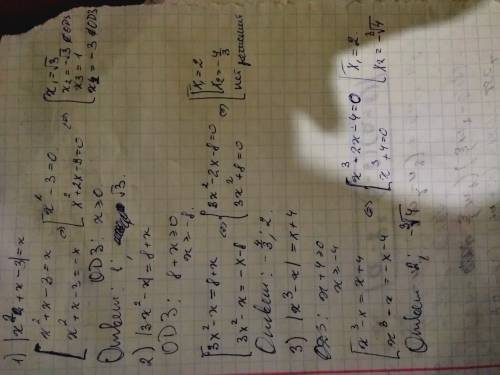 1) |x² + x - 3| = x
[ x² + x - 3 = x
x² + x - 3 = -x
⇔ [ x² - 3 = 0
x² + 2x - 3 = 0
⇔ [ x₁ = √3
x₂ = -√3 ∉ ОДЗ
x₃ = 1
x₄ = -3 ∉ ОДЗ
ОДЗ: x ≥ 0
Ответ: 1; √3.
2) |3x² - x| = 8 + x
ОДЗ: 8 + x ≥ 0
x ≥ -8.
[ 3x² - x = 8 + x
3x² - x = -x - 8
⇔ [ 3x² - 2x - 8 = 0
3x² + 8 = 0
⇔ [ x₁ = 2
x₂ = -4/3
нет решений
Ответ: -4/3; 2.
3) |x³ - x| = x + 4
ОДЗ: x + 4 ≥ 0
x ≥ -4
[ x³ - x = x + 4
x³ - x = -x - 4
⇔ [ x³ - 2x - 4 = 0
x³ + 4 = 0
[ x₁ = 2.
x₂ = -∛4
Ответ: 2; -∛4